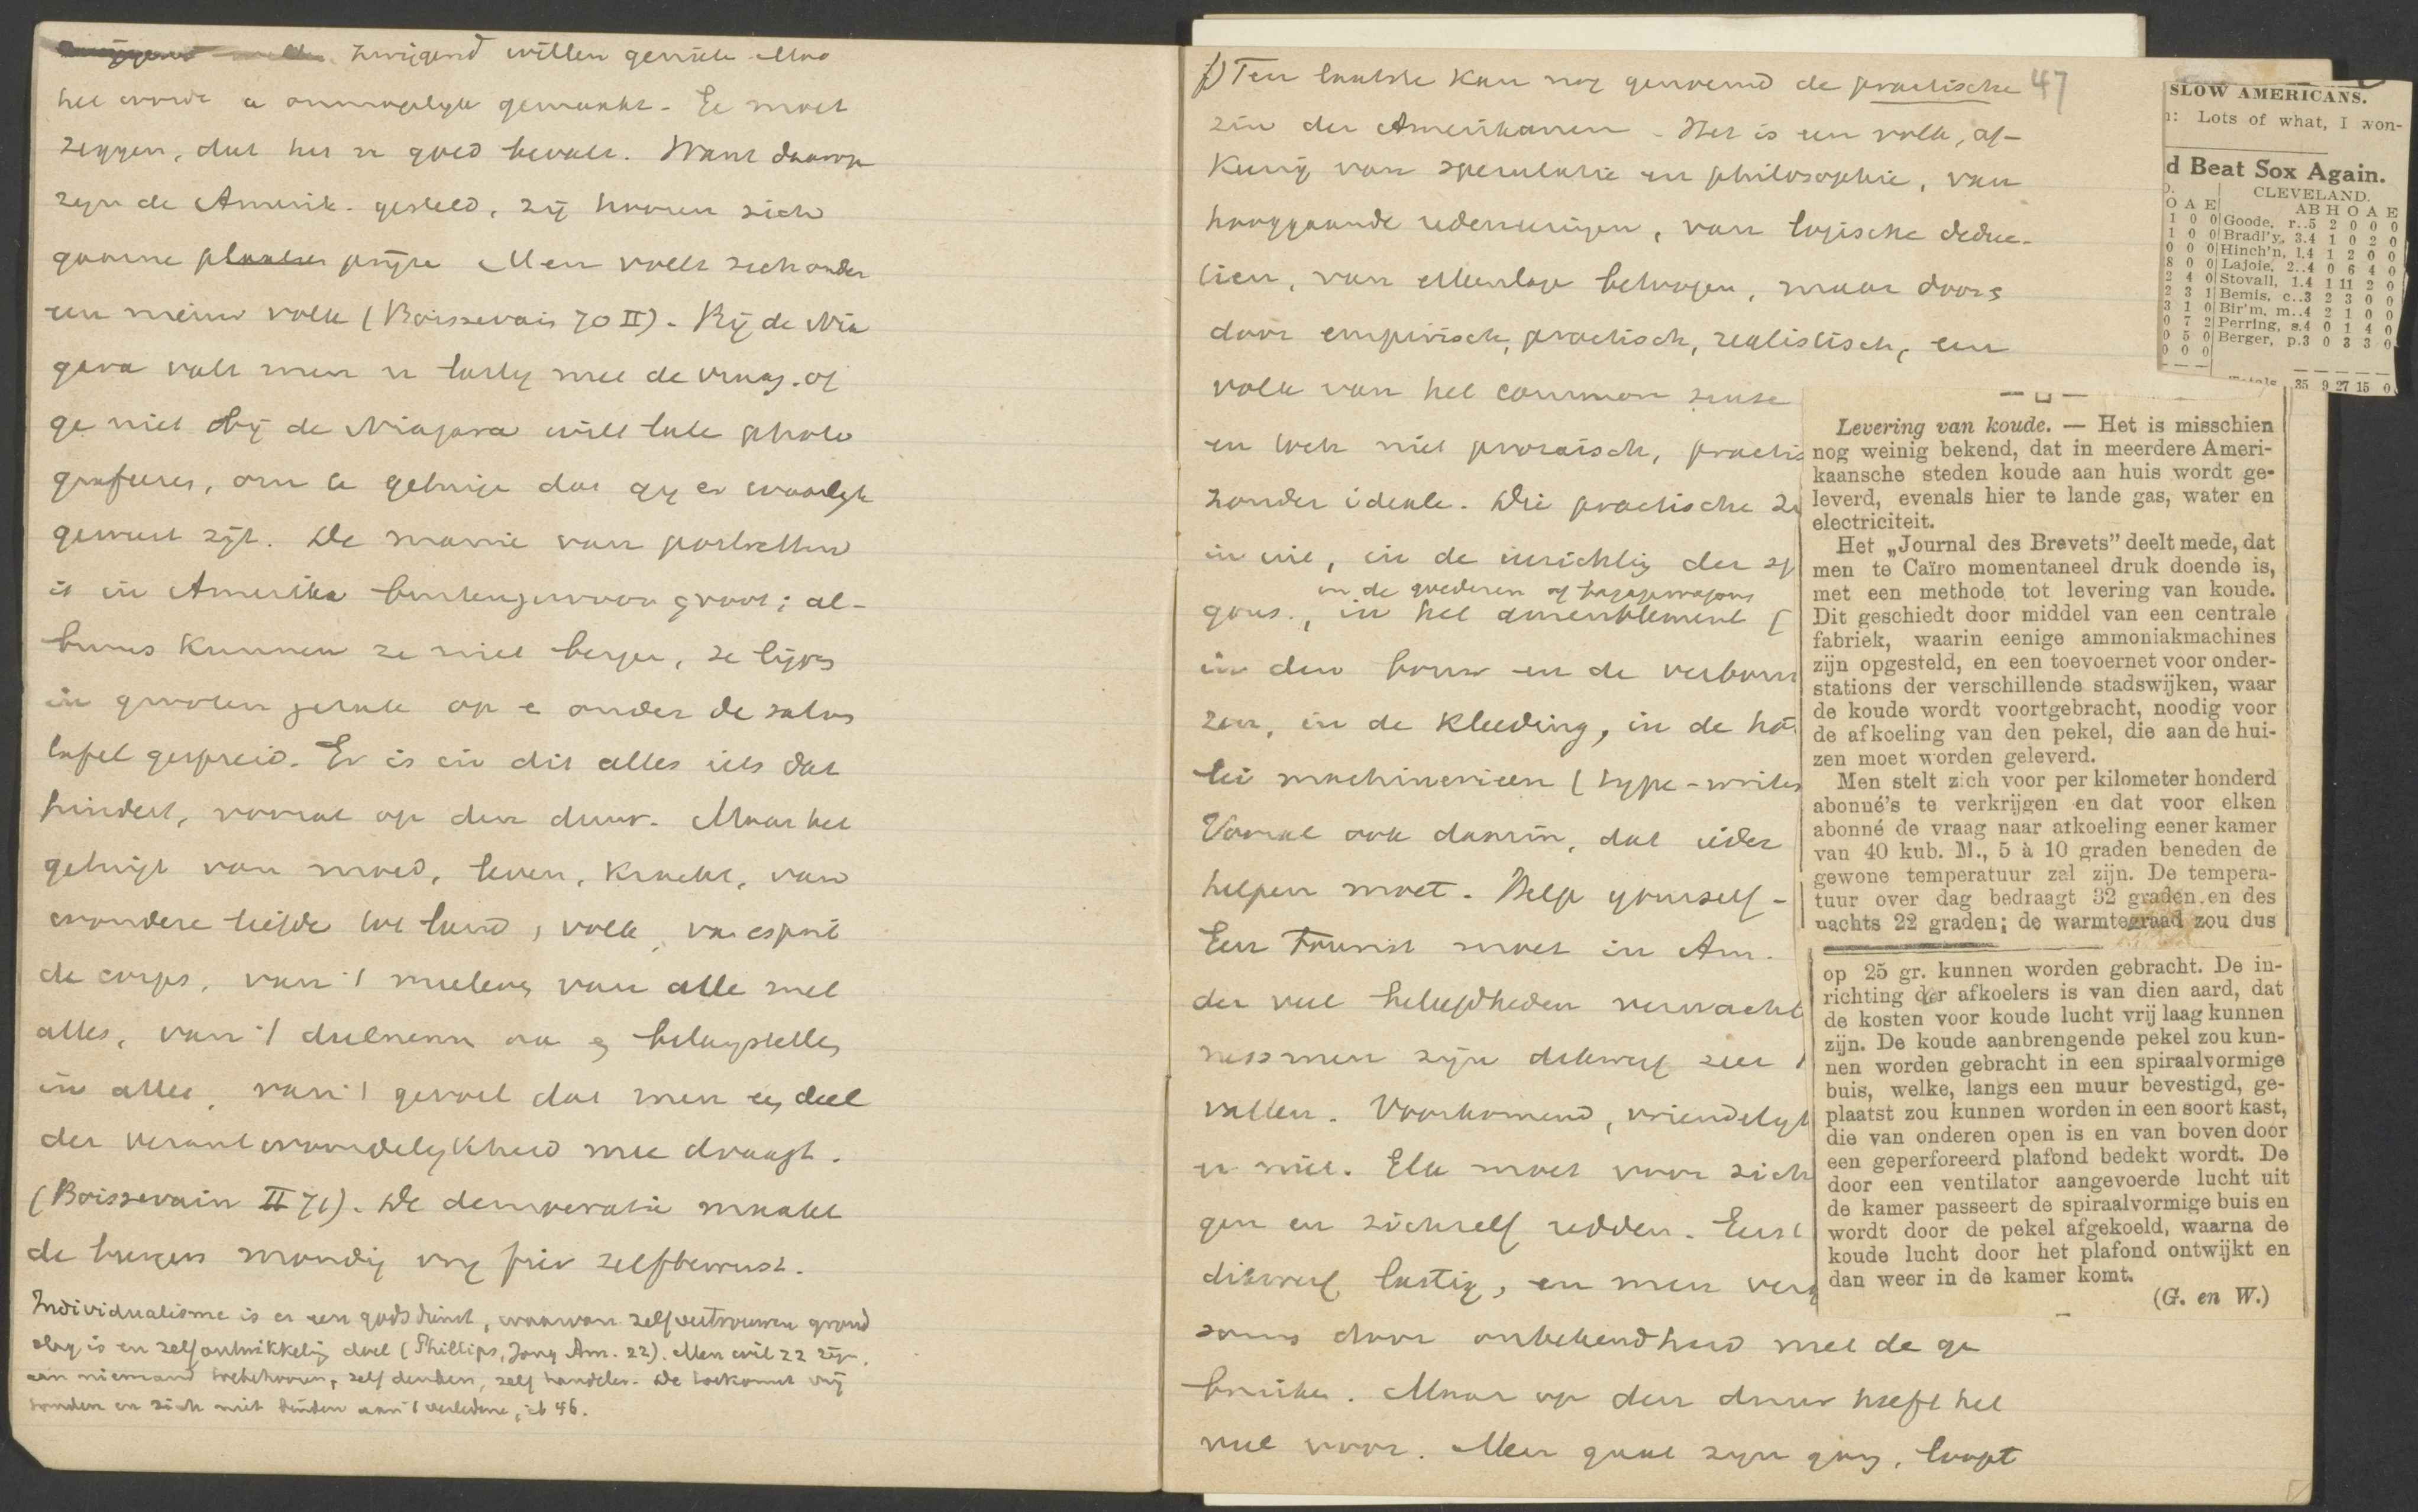 zwijgend willen geniete Maar
het wordt u onmogelijk gemaakt. Ge moet
zeggen, dat het u goed bevalt. Want daarop
zijn de Amerik. gesteld, zij hooren zich
gaarne prijze Men voelt zich onder
een nieuw volk (Boissevain 70 II). Bij de Nia
gara valt men u lastig met de vraag. of
ge niet bij de Niagara wilt late photo
grafeeren, om te getuige dat gij er waarlijk
geweest zijt. De manie van portretten
is in Amerika buitengewoon groot; al-
bums kunnen ze niet berge, ze ligge
in grooten getale op e onder de salon
tafel gespreid. Er is in dit alles iets dat
hindert, vooral op den duur. Maar het
getuigt van moed, leven, kracht, van
wondere liefde tot land, volk, va esprit
de corps, van 't meeleve van alle met
alles, van 't deelneme aa e belangstelle
in alles, van 't gevoel dat men ee deel
der verantwoordelijkheid mee draagt.
(Boissevain II 71). De democratie maakt
de burgers mondig vrij fier zelfbewust.
Individualisme is er een godsdienst, waarvan zelfvertrouwen grond
slag is en zelfontwikkeling doel (Phillips, Jong Am. 22). Men wil zz zijn,
aan niemand toebehooren, zelf denken, zelf handelen. De toekomst vrij
houden en zich niet binden aan 't verledene, ib 46.
f) Ten laatste kan nog genoemd de practische 47
zin der Amerikanen. Het is een volk, af-
keerig van speculatie en philosophie, van
hooggaande redeneeringen, van logische deduc-
ties, van ellenlage betooge, maar door e
door empirisch, practisch, realistisch, een
volk van het common sense
en toch niet prozaisch, practis
zonder ideale. Die practische zi
in uit, in de inrichting der sp
in de goederen of bagagewagons
gons., in het ameublement [
in den bouw en de verbouw
zen, in de kleeding, in de ho
lei machinerieen (type-write
Vooral ook daarin, dat ieder
helpen moet. Help yourself -
Een tourist moet in Am.
der veel beleefdheden verwacht
nessmen zijn dikwerf zeer
vallen. Voorkomend, vriendelijk
er niet. Elk moet voor zich
gen en zichzelf redden. Eerst
dikwerf lastig, en men verg
soms door onbekendheid met de ge
bruiken. Maar op den duur heeft het
veel voor. Men gaat zijn gang, loopt
SLOW AMERICANS.
: Lots of what, I won-
d Beat Sox Again.
CLEVELAND.
O A E AB H O A E
1 0 0 Goode, r..5 2 0 0 0
1 0 0 Bradl'y, 3.4 1 0 2 0
0 0 0 Hinch'n, l.4 1 2 0 0
8 0 0 Lajoie, 2..4 0 6 4 0
2 4 0 Stovall, 1.4 1 11 2 0
2 3 1 Bemis, c..3 2 3 0 0
3 1 0 Bir'm, m..4 2 1 0 0
0 7 2 Perring, s.4 0 1 4 0
0 5 0 Berger, p.3 0 3 3 0
0 0 0
35 9 27 15 0
Levering van koude. — Het is misschien
nog weinig bekend, dat in meerdere Ameri-
kaansche steden koude aan huis wordt ge-
leverd, evenals hier te lande gas, water en
electriciteit.
Het „Journal des Brevets” deelt mede, dat
men te Caïro momentaneel druk doende is,
met een methode tot levering van koude.
Dit geschiedt door middel van een centrale
fabriek, waarin eenige ammoniakmachines
zijn opgesteld, en een toevoernet voor onder-
stations der verschillende stadswijken, waar
de koude wordt voortgebracht, noodig voor
de afkoeling van den pekel, die aan de hui-
zen moet worden geleverd.
Men stelt zich voor per kilometer honderd
abonné's te verkrijgen en dat voor elken
abonné de vraag naar afkoeling eener kamer
van 40 kub. M., 5 à 10 graden beneden de
gewone temperatuur zal zijn. De tempera-
tuur over dag bedraagt 32 graden en des
nachts 22 graden; de warmtegraad zou dus
op 25 gr. kunnen worden gebracht. De in-
richting der afkoelers is van dien aard, dat
de kosten voor koude lucht vrij laag kunnen
zijn. De koude aanbrengende pekel zou kun-
nen worden gebracht in een spiraalvormige
buis, welke, langs een muur bevestigd, ge-
plaatst zou kunnen worden in een soort kast,
die van onderen open is en van boven door
een geperforeerd plafond bedekt wordt. De
door een ventilator aangevoerde lucht uit
de kamer passeert de spiraalvormige buis en
wordt door de pekel afgekoeld, waarna de
koude lucht door het plafond ontwijkt en
dan weer in de kamer komt.
(G. en W.)